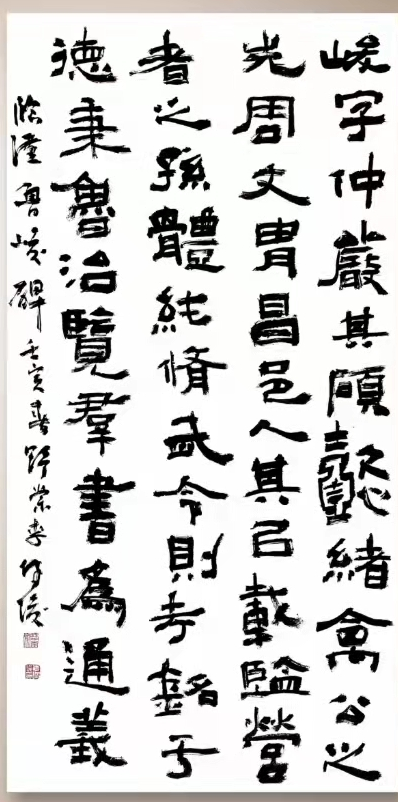 峻字仲嚴其碩懿緒禽公之
先周文胄昌邑人其㠯載監營
者之孫體純脩武令則考銘于
德秉魯治覽羣書為通義
臨漢魯峻碑壬寅春